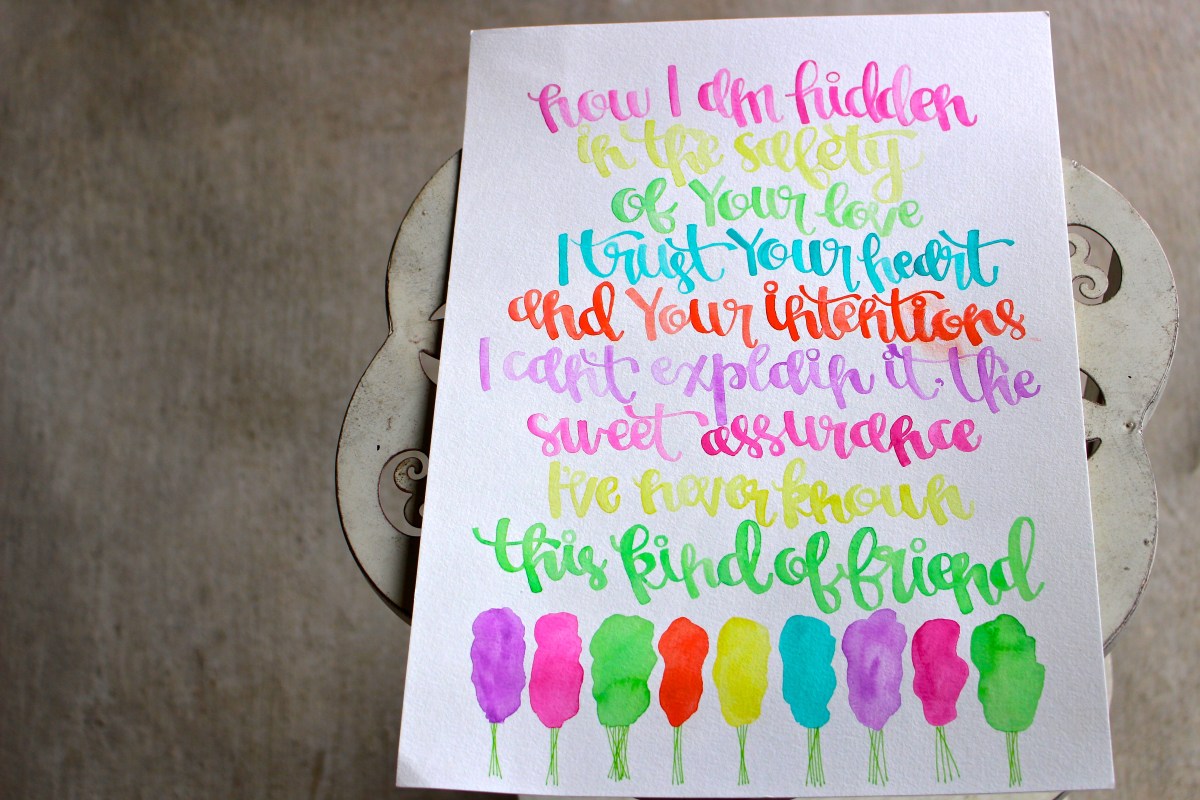 now I am hidden
in the safety
of Your love
I trust Your heart
and Your intentions
I can't explain it, the
sweet assurance
I've never known
this kind of friend